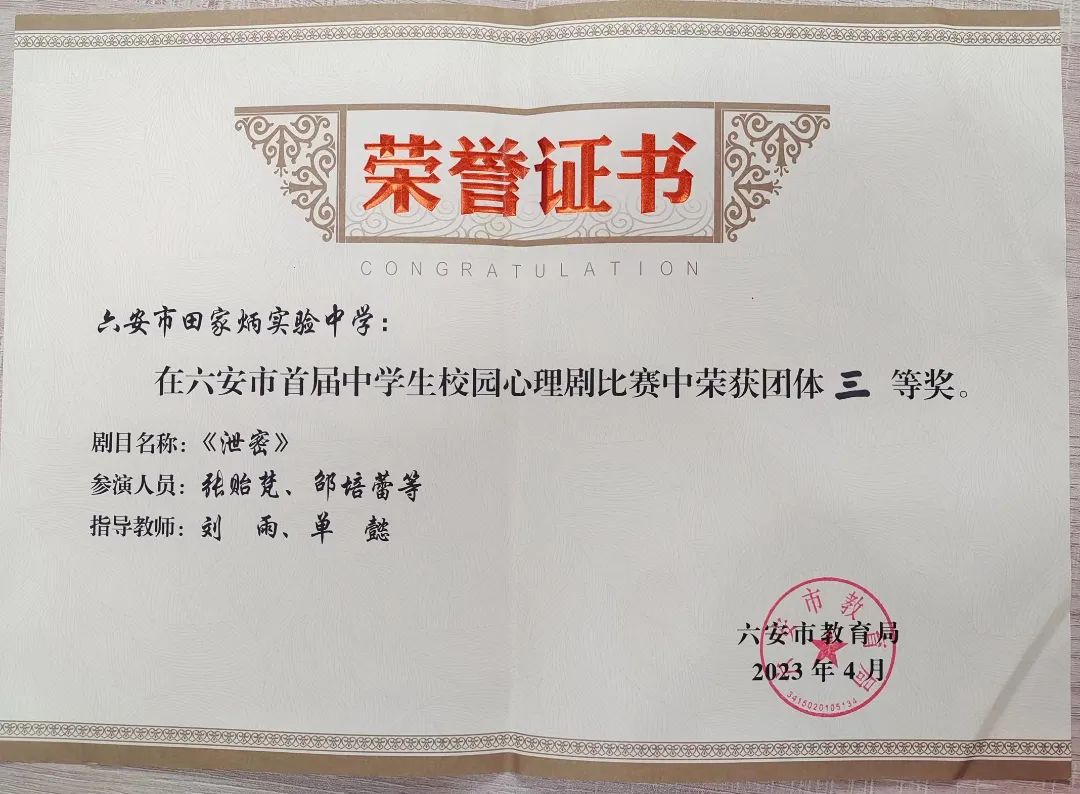 荣誉证书
CONGRATULATION
六安市田家炳实验中学：
在六安市首届中学生校园心理剧比赛中荣获团体 三 等奖。
剧目名称：《泄密》
参演人员：张贻梵、邵培蕾等
指导教师：刘 雨、单 懿
六安市教育局
2023 年 4 月
六安市教育局
3415020105134